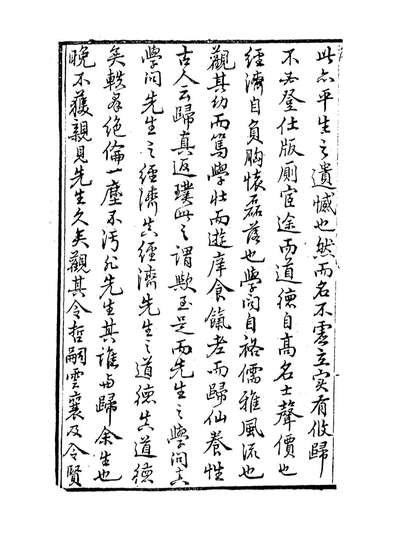 此亦平生之遺憾也然而名不虛立實有攸歸
不必登仕版廁宦途而道德自高名士聲價也
經濟自負胸懷磊落也學問自裕儒雅風流也
觀其幼而篤學壯而遊庠食餼老而歸仙養性
古人云歸真返璞此之謂歟至是而先生之學問真
學問先生之經濟真經濟先生之道德真道德
矣軼群絕倫一塵不污非先生其誰與歸余生也
晚不獲親見先生久矣觀其令哲嗣雲襄及令賢